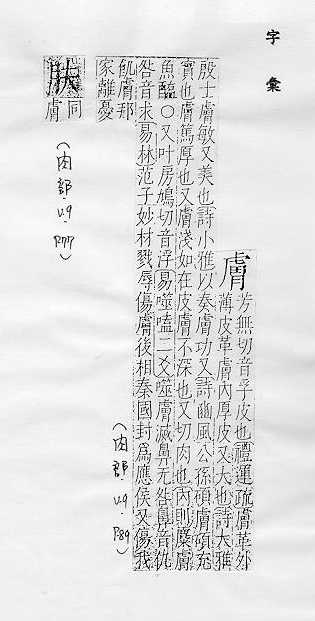 字彙
膚
芳無切音孚皮也禮運疏膚革外
薄皮革膚內厚皮又大也詩大雅
殷士膚敏又美也詩小雅以奏膚功又詩豳風公孫碩膚碩充
實也膚篤厚也又膚淺如在皮膚不深也又切肉也內則麋膚
魚醢○又叶房鳩切音浮易噬嗑二爻噬膚滅鼻无咎鼻音仇
咎音求易林范子妙材戮辱傷膚後相秦國封爲應侯又傷我
飢膚邦
家離憂
(肉部.V.9.P89)
肤
同
膚
(肉部.V.9.P77)